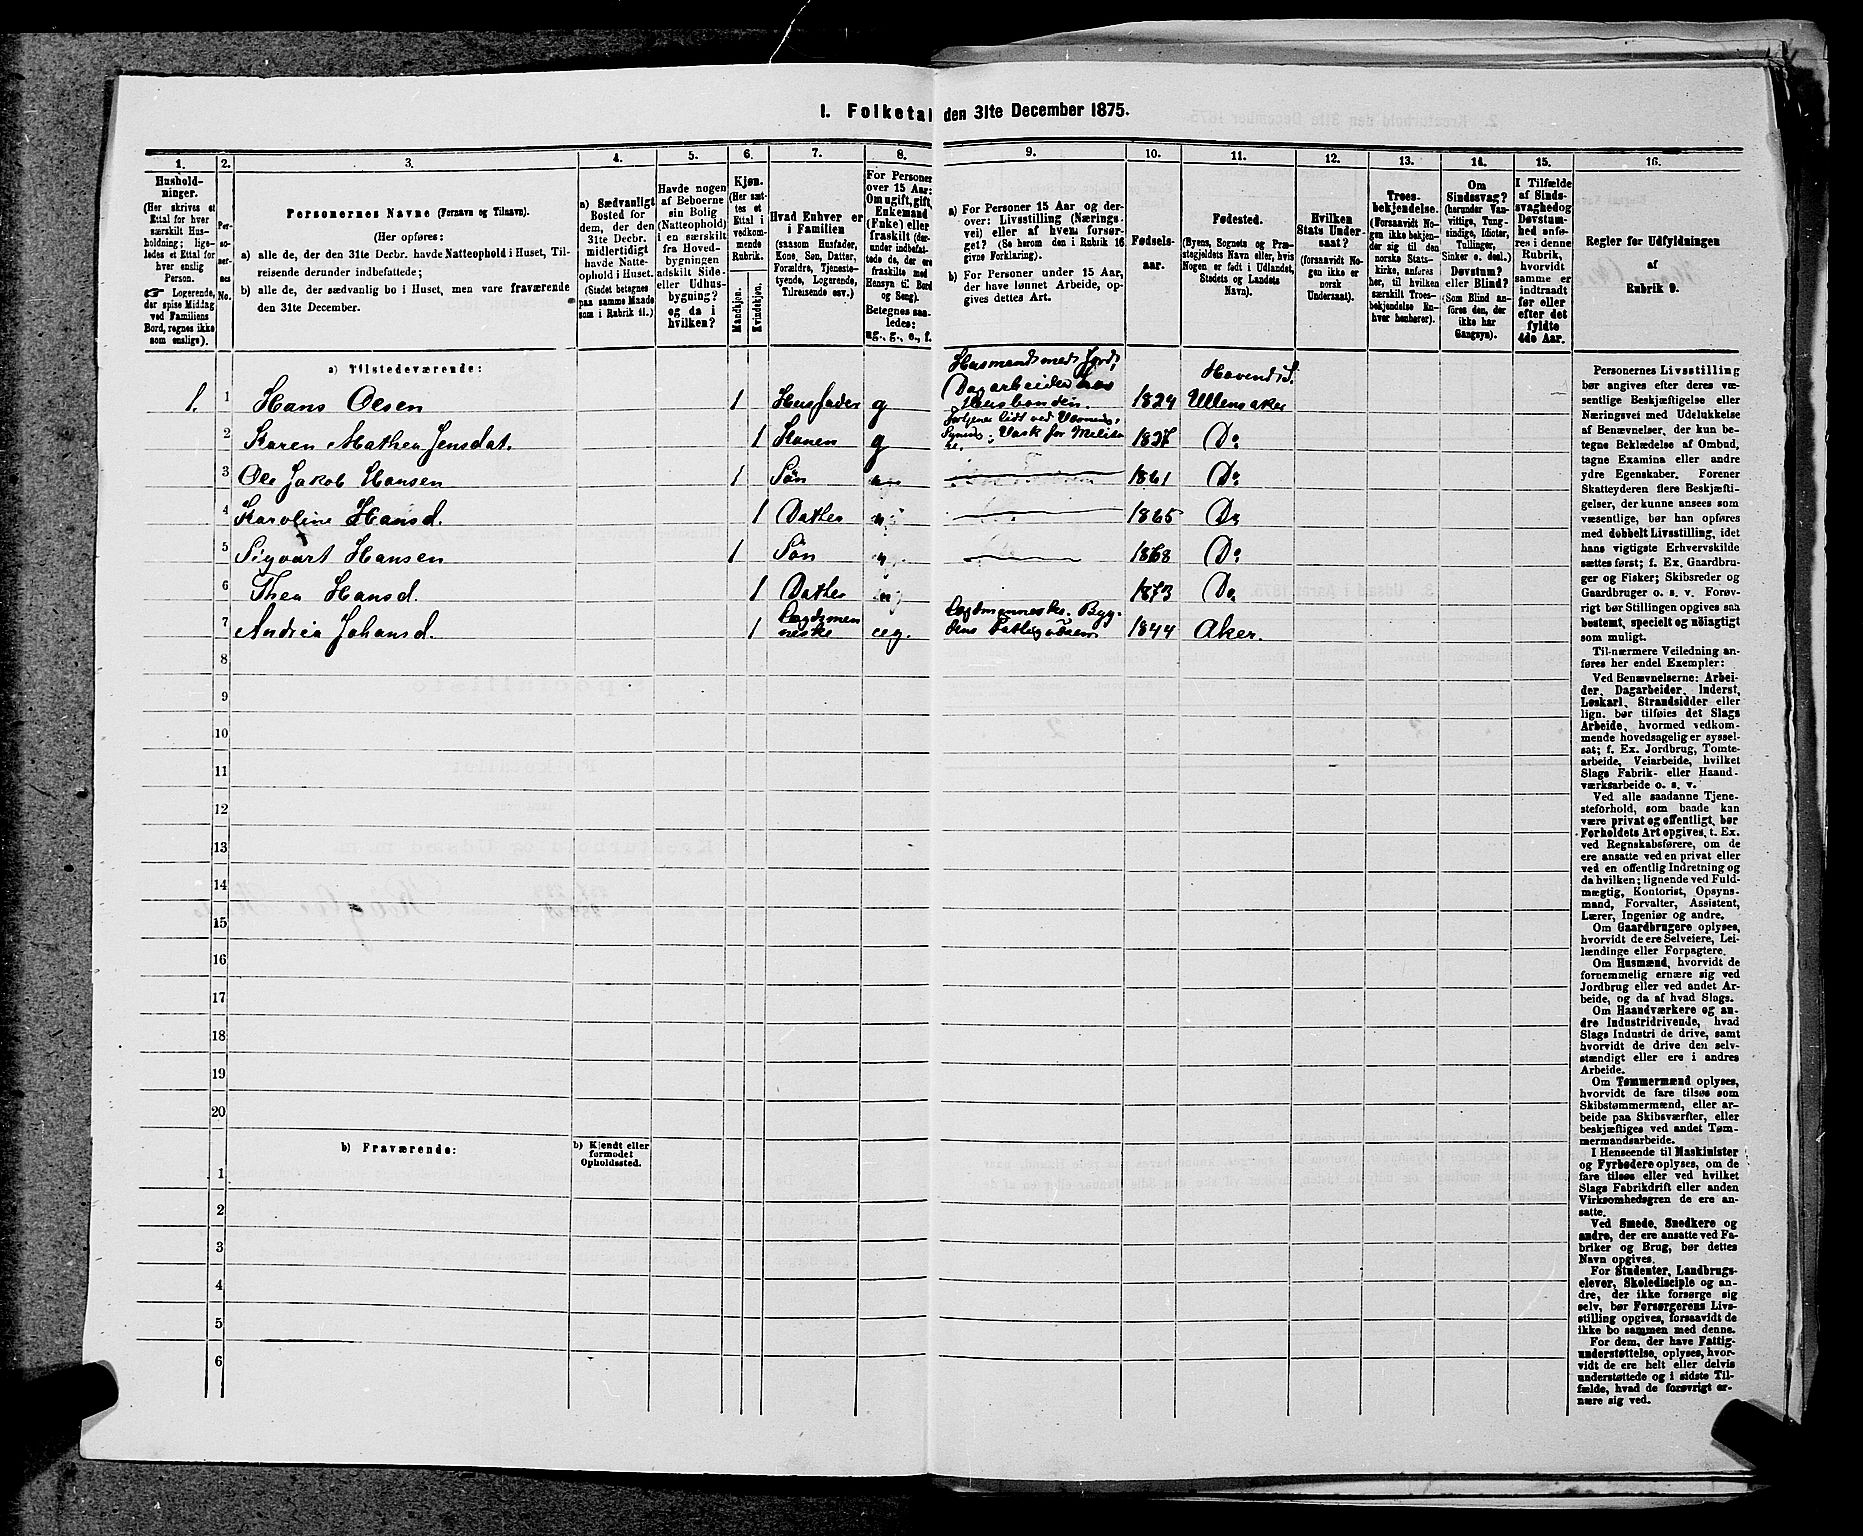 1. Folketal den 31te December 1875.
1.
2.
3.
4.
5.
6.
7.
8.
9.
10.
11.
12.
13.
14.
15.
16.
Hushold-
ninger.
(Her skrives et
Ettal for hver
særskilt Hus-
holdning; lige-
ledes et Ettal for
hver enslig
Person.
☞ Logerende,
der spise Middag
ved Familiens
Bord, regnes ikke
som enslige).
Per-
so-
ner-
nes
No.
Personernes Navne (Fornavn og Tilnavn).
(Her opføres:
a) alle de, der den 31te Decbr. havde Natteophold i Huset, Til-
reisende derunder indbefattede;
b) alle de, der sædvanlig bo i Huset, men vare fraværende
den 31te December.
a) Sædvanligt
Bosted for
dem, der den
31te Decbr.
midlertidigt
havde Natte-
ophold i Huset.
(Stedet betegnes
paa samme Maade
som i Rubrik 11.)
Havde nogen
af Beboerne
sin Bolig
(Natteophold)
i en særskilt
fra Hoved-
bygningen
adskilt Side-
eller Udhus-
bygning?
og da i
hvilken?
Kjøn.
(Her sæt-
tes et
Ettal i
vedkom-
mende
Rubrik.
Mandkjøn.
Kvindekjøn.
Hvad Enhver er
i Familien
(saasom Husfader,
Kone, Søn, Datter,
Forældre, Tjeneste-
tyende, Logerende,
Tilreisende osv.)
For Personer
over 15 Aar:
Om ugift, gift,
Enkemand
(Enke) eller
fraskilt (der-
under indbefat-
tede de, der ere
fraskilte med
Hensyn til Bord
og Seng).
Betegnes saa-
ledes:
ug., g., e., f.
a) For Personer 15 Aar og der-
over: Livsstilling (Nærings-
vei) eller af hvem forsør-
get? (Se herom den i Rubrik 16
givne Forklaring).
b) For Personer under 15 Aar,
der have lønnet Arbeide, op-
gives dettes Art.
Fødsels-
aar.
Fødested.
(Byens, Sognets og Præ-
stegjeldets Navn eller, hvis
Nogen er født i Udlandet,
Stedets og Landets
Navn).
Hvilken
Stats Under-
saat?
(forsaavidt No-
gen ikke er
norsk
Undersaat).
Troes-
bekjendelse.
(Forsaavidt No-
gen ikke bekjen-
der sig til den
norske Stats-
kirke, anføres
her, til hvilken
særskilt Troes-
bekjendelse En-
hver henhører).
Om
Sindssvag?
(herunder Van-
vittige, Tung-
sindige, Idioter,
Tullinger,
Sinker o. desl.).
Døvstum?
eller Blind?
(Som Blind an-
føres den, der
ikke har
Gangsyn).
I Tilfælde
af Sinds-
svaghed og
Døvstum-
hed anfø-
res i denne
Rubrik,
hvorvidt
samme er
indtraadt
før eller
efter det
fyldte
4de Aar.
Regler for Udfyldningen
af
Rubrik 9.
a) Tilstedeværende:
1. 1 Hans Olsen 1 Husfader g Husmand med Jord,
Dagarbeider hos
Husbonden. 1824 Ullensaker
2 Karen Mathea Jensdat. 1 Konen g Vask for 1827 Do
3 Ole Jakob Hansen 1 Søn 1861 Do
4 Karoline Hansd. 1 Datter 1865 Do
5 Sigvart Hansen 1 Søn 1868 Do
6 Thea Hansd. 1 Datter 1873 Do
7 Andrea Johansd. 1 Lægdsmen
neske ug. Lægdmenneske. Byg-
dens 1844 Aker.
8
9
10
11
12
13
14
15
16
17
18
19
20
b) Fraværende:
b) Kjendt eller
formodet
Opholdssted.
1
2
3
4
5
6
Personernes Livsstilling
bør angives efter deres væ-
sentlige Beskjæftigelse eller
Næringsvei med Udelukkelse
af Benævnelser, der kun be-
tegne Beklædelse af Ombud,
tagne Examina eller andre
ydre Egenskaber. Forener
Skatteyderen flere Beskjæfti-
gelser, der kunne ansees som
væsentlige, bør han opføres
med dobbelt Livsstilling, idet
hans vigtigste Erhvervskilde
sættes først; f. Ex. Gaardbru-
ger og Fisker; Skibsreder og
Gaardbruger o. s. v. Forøv-
rigt bør Stillingen opgives saa
bestemt, specielt og nøiagtigt
som muligt.
Til nærmere Veiledning an-
føres her endel Exempler:
Ved Benævnelserne: Arbei-
der, Dagarbeider, Inderst,
Løskarl, Strandsidder eller
lign. bør tilføies det Slags
Arbeide, hvormed vedkom-
mende hovedsagelig er syssel-
sat; f. Ex. Jordbrug, Tomte-
arbeide, Veiarbeide, hvilket
Slags Fabrik- eller Haand-
værksarbeide o. s. v.
Ved alle saadanne Tjene-
steforhold, som baade kan
være privat og offentligt, bør
Forholdets Art opgives, t. Ex.
ved Regnskabsførere, om de
ere ansatte ved en privat eller
ved en offentlig Indretning og
da hvilken; lignende ved Fuld-
mægtig, Kontorist, Opsyns-
mand, Forvalter, Assistent,
Lærer, Ingeniør og andre.
Om Gaardbrugere oplyses,
hvorvidt de ere Selveiere, Lei-
lændinge eller Forpagtere.
Om Husmænd, hvorvidt de
fornemmelig ernære sig ved
Jordbrug eller ved andet Ar-
beide, og da af hvad Slags.
Om Haandværkere og an-
dre Industridrivende, hvad
Slags Industri de drive, samt
hvorvidt de drive den selv-
stændigt eller ere i andres
Arbeide.
Om Tømmermænd oplyses,
hvorvidt de fare tilsøs som
Skibstømmermænd, eller ar-
beide paa Skibsværfter, eller
beskjæftiges ved andet Tøm-
mermandsarbeide.
I Henseende til Maskinister
og Fyrbødere oplyses, om de
fare tilsøs eller ved hvilket
Slags Fabrikdrift eller anden
Virksomhedsgren de ere an-
satte.
Ved Smede, Snedkere og
andre, der ere ansatte ved Fa-
briker og Brug, bør dettes
Navn opgives.
For Studenter, Landbrugs-
elever, Skoledisciple og an-
dre, der ikke forsørge sig
selv, bør Forsørgerens Livs-
stilling opgives, forsaavidt de
ikke bo sammen med denne.
For dem, der have Fattig-
understøttelse, oplyses, hvor-
vidt de ere helt eller delvis
understøttede og i sidste Til-
fælde, hvad de forøvrigt er-
nære sig ved.